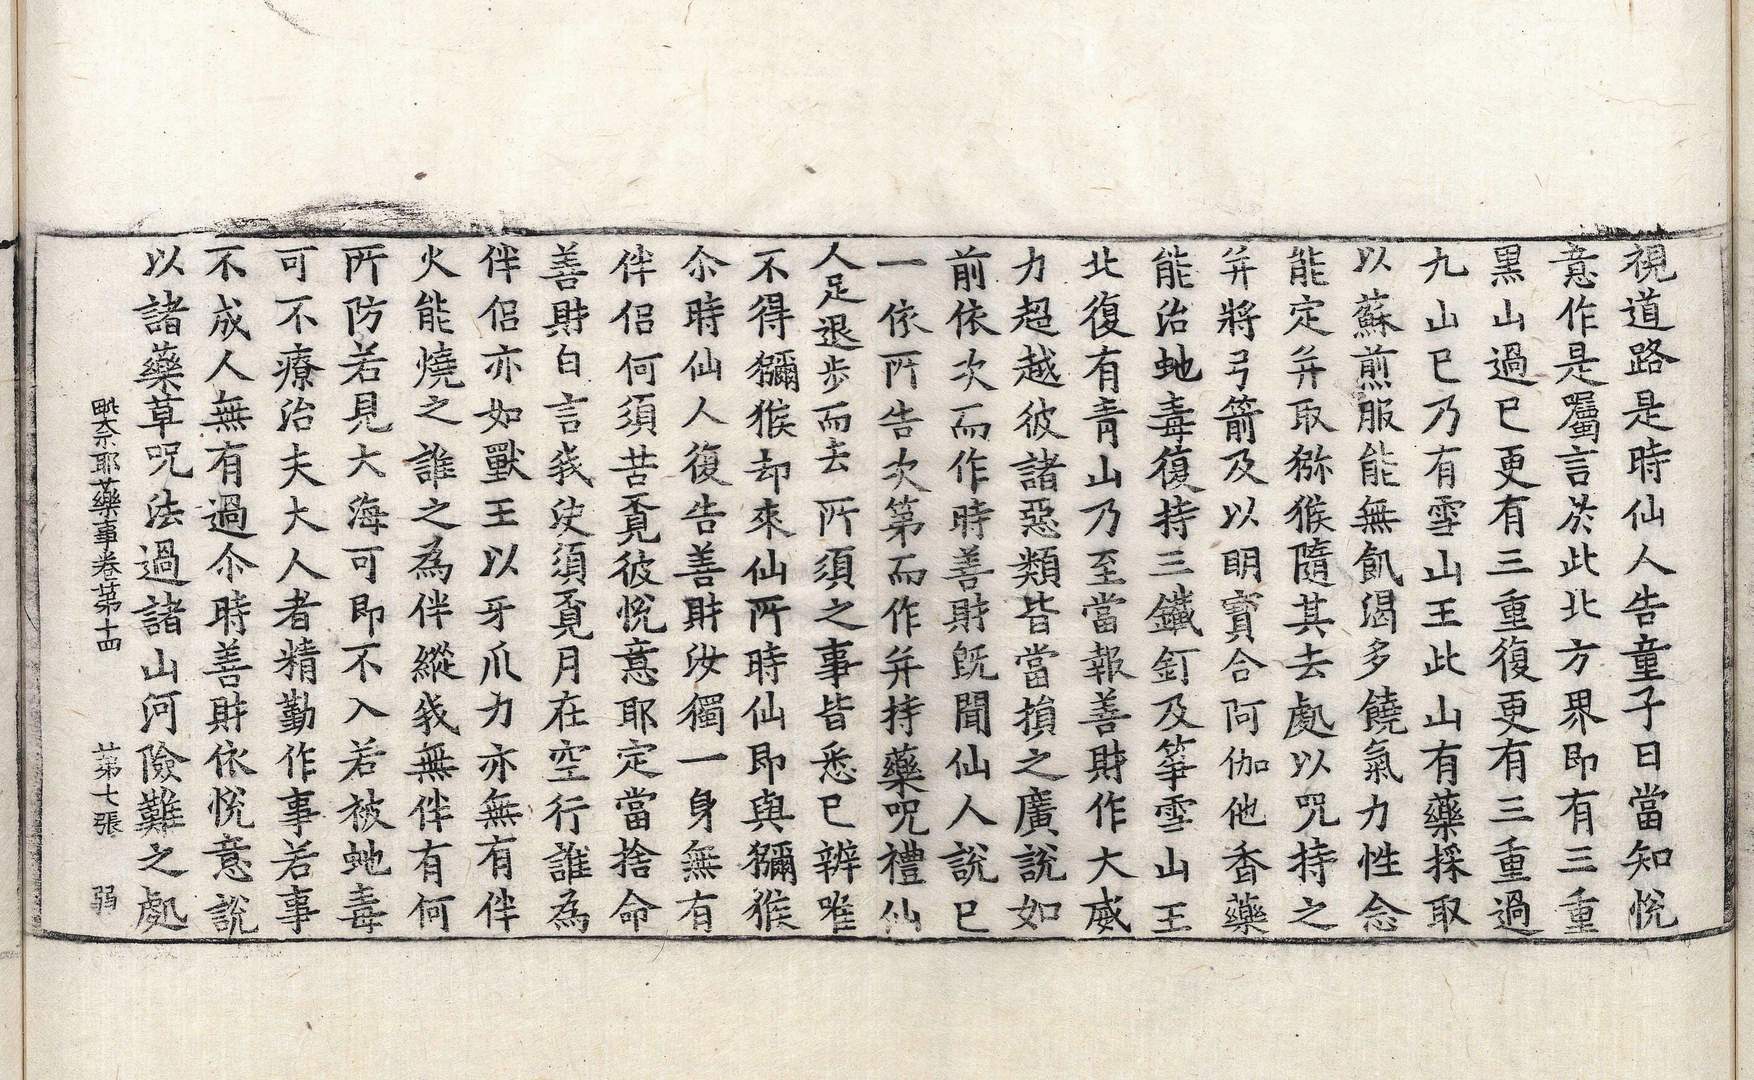 視道路是時仙人告童子曰當知悅
意作是囑言於此北方界即有三重
黑山過已更有三重復更有三重過
九山已乃有雪山王此山有藥採取
以蘇煎服能無飢渴多饒氣力性念
能定并取猕猴隨其去處以呪持之
并將弓箭及以明寶合阿伽他香藥
能治虵毒復持三鐵釘及筝雪山王
北復有青山乃至當報善財作大威
力超越彼諸惡類皆當損之廣說如
前依次而作時善財旣聞仙人說已
一依所告次第而作并持藥呪禮仙
人足退步而去所須之事皆悉已辨唯
不得獼猴却來仙所時仙即與獼猴
尒時仙人復告善財汝獨一身無有
伴侶何須苦覔彼悅意耶定當捨命
善財白言我決須覔月在空行誰為
伴侶亦如獸王以牙爪力亦無有伴
火能燒之誰之為伴縱我無伴有何
所防若見大海可即不入若被虵毒
可不療治夫大人者精勤作事若事
不成人無有過尒時善財依悅意說
以諸藥草呪法過諸山河險難之處
毗奈耶藥事卷第十四 第七張 弱